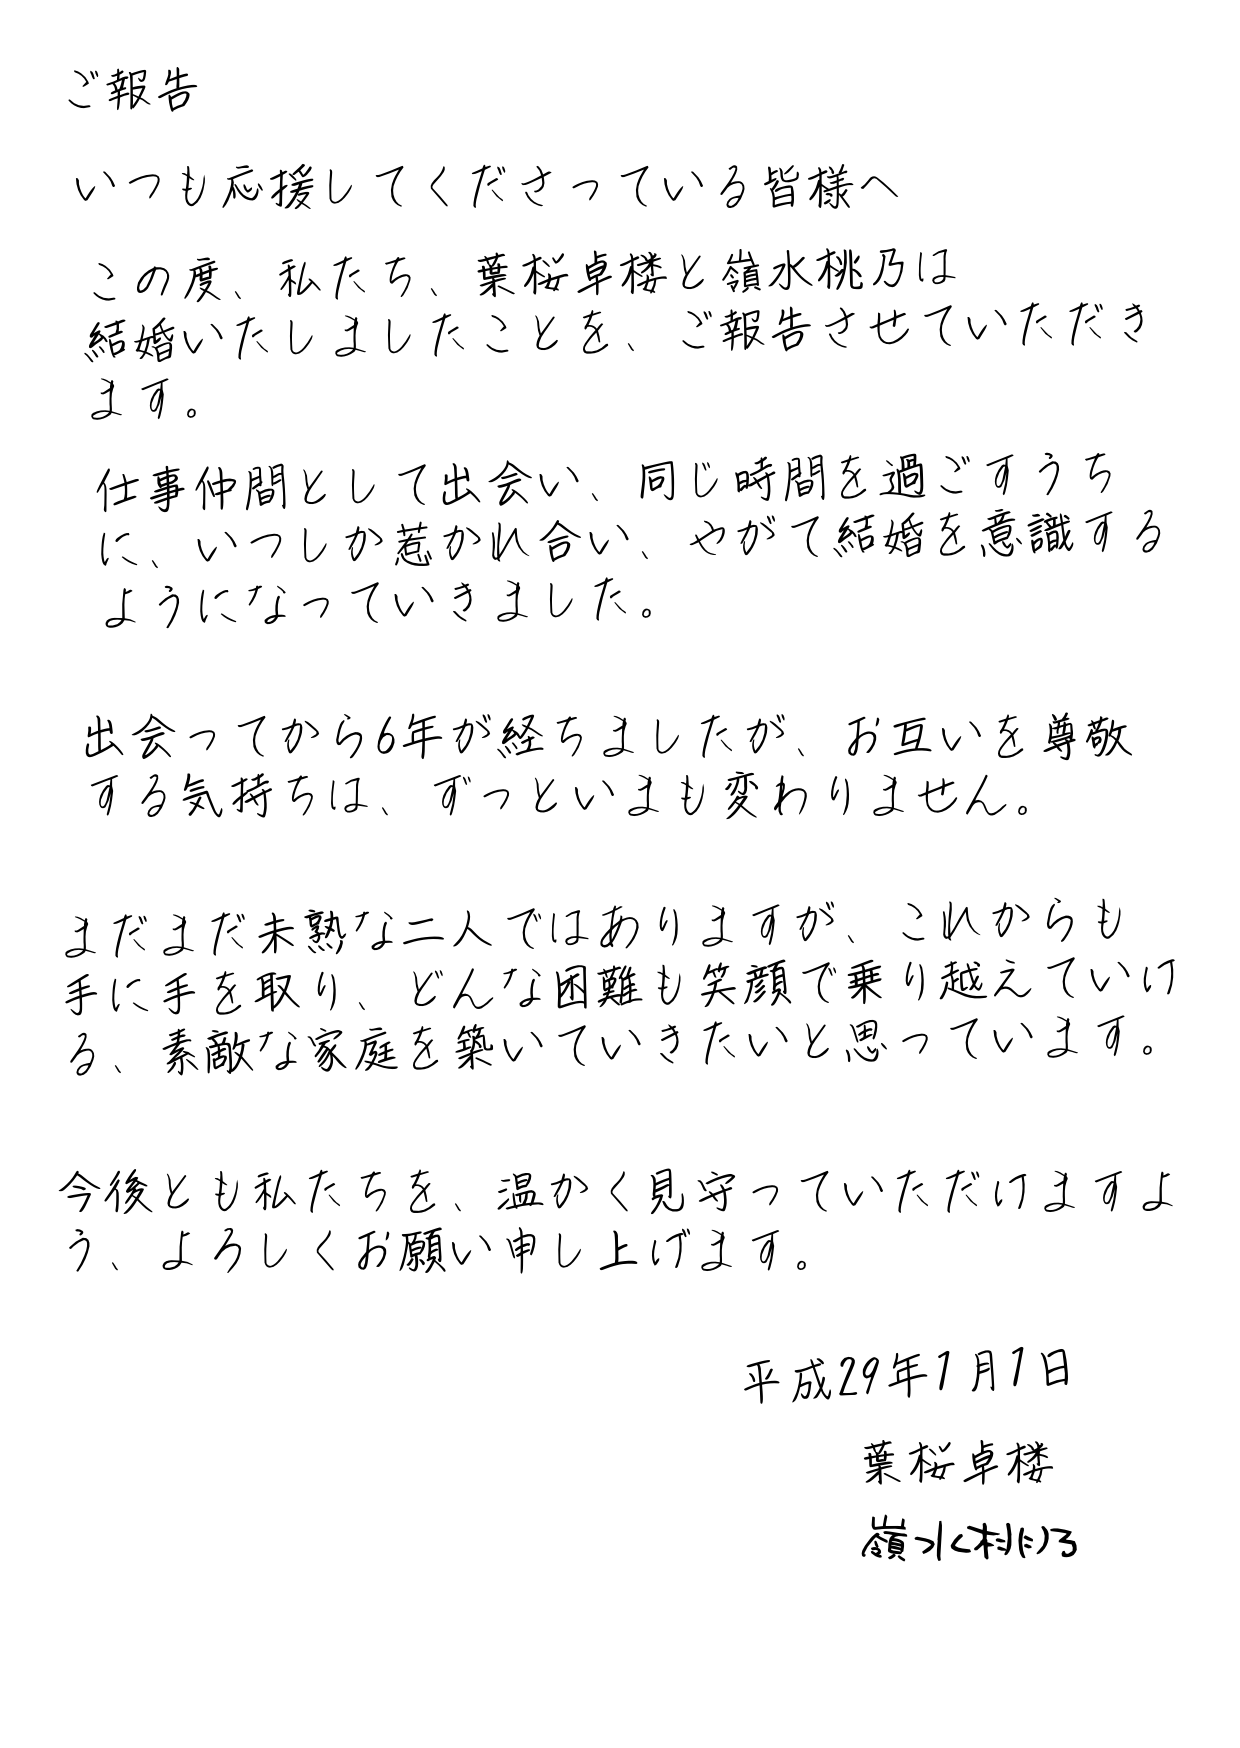 ご報告
いつも応援してくださっている皆様へ
この度、私たち、葉桜卓楼と嶺水桃乃は
結婚いたしましたことを、ご報告させていただき
ます。
仕事仲間として出会い、同じ時間を過ごすうち
に、いつしか惹かれ合い、やがて結婚を意識する
ようになっていきました。
出会ってから6年が経ちましたが、お互いを尊敬
する気持ちは、ずっといまも変わりません。
まだまだ未熟な二人ではありますが、これからも
手に手を取り、どんな困難も笑顔で乗り越えていけ
る、素敵な家庭を築いていきたいと思っています。
今後とも私たちを、温かく見守っていただけますよ
う、よろしくお願い申し上げます。
平成29年1月1日
葉桜卓楼
嶺水桃乃